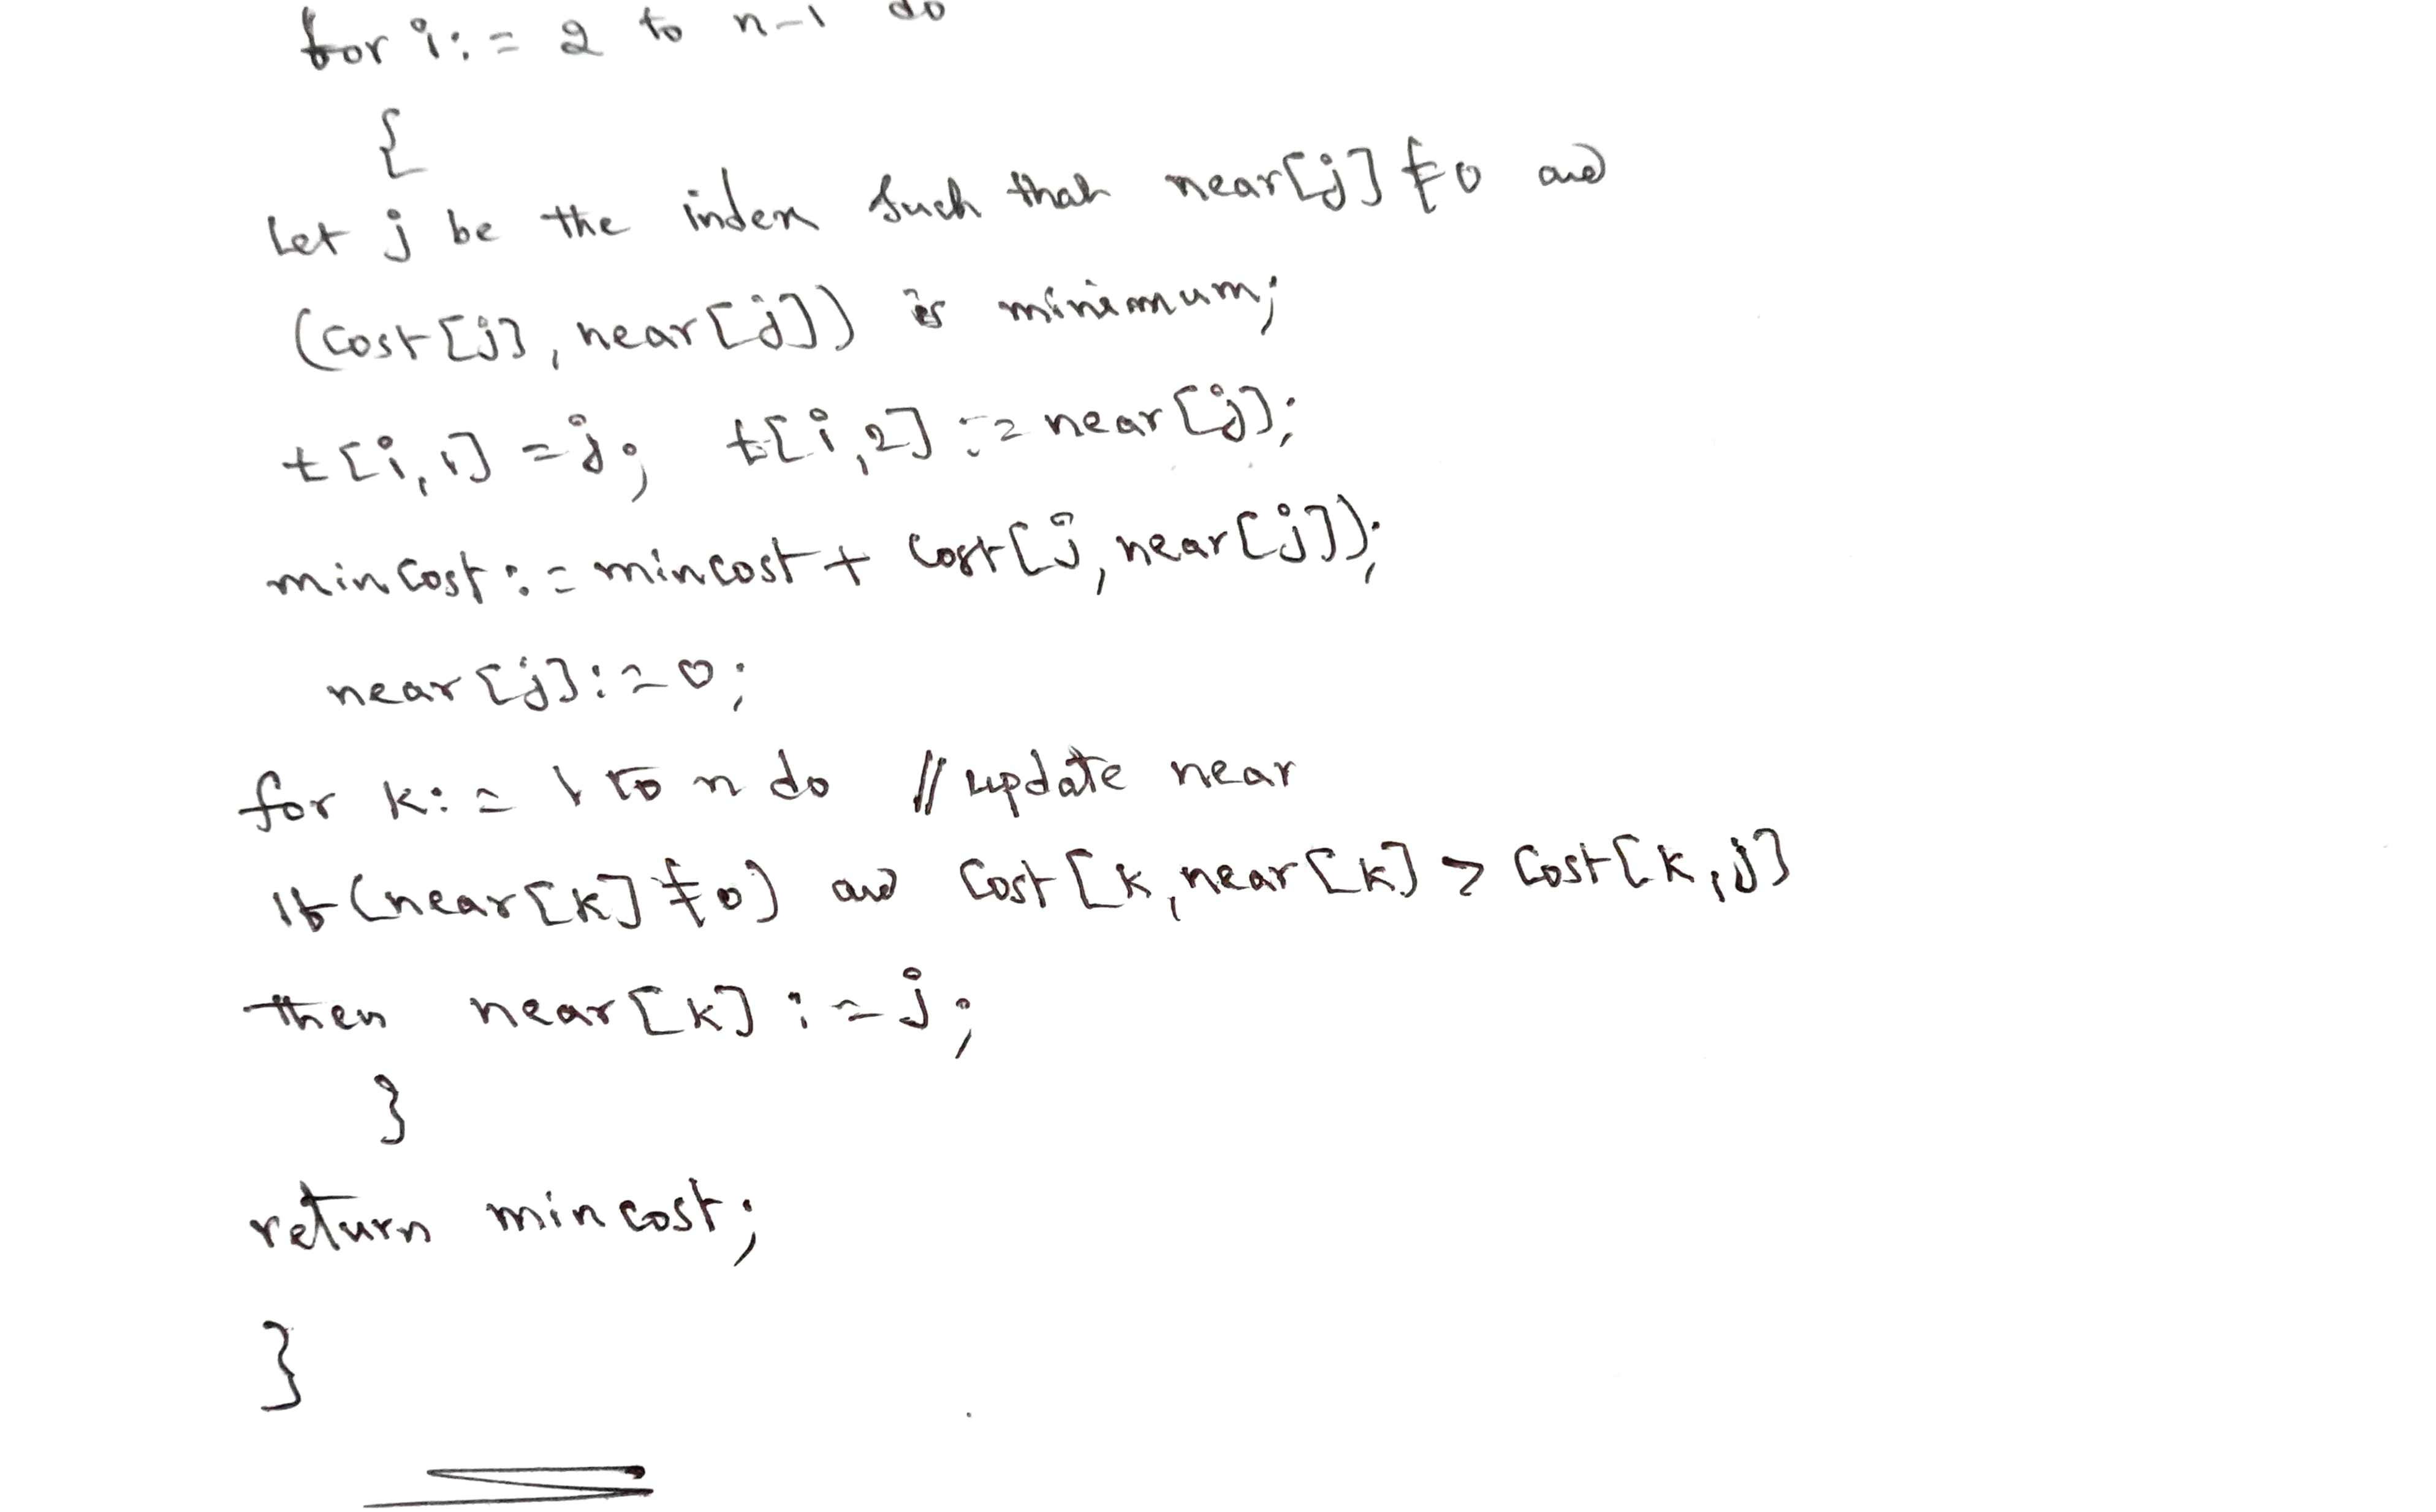 for i := 2 to n-1 do
{
Let j be the index such that near[j] ≠ 0 and
(cost[j], near[j])) is minimum;
t[i,1] = j; t[i,2] := near[j];
mincost := mincost + cost[j, near[j]);
near[j] := 0;
for k := 1 to n do // update near
If (near[k] ≠ 0) and cost[k, near[k] > cost[k,j]
then near[k] := j;
}
return mincost;
}